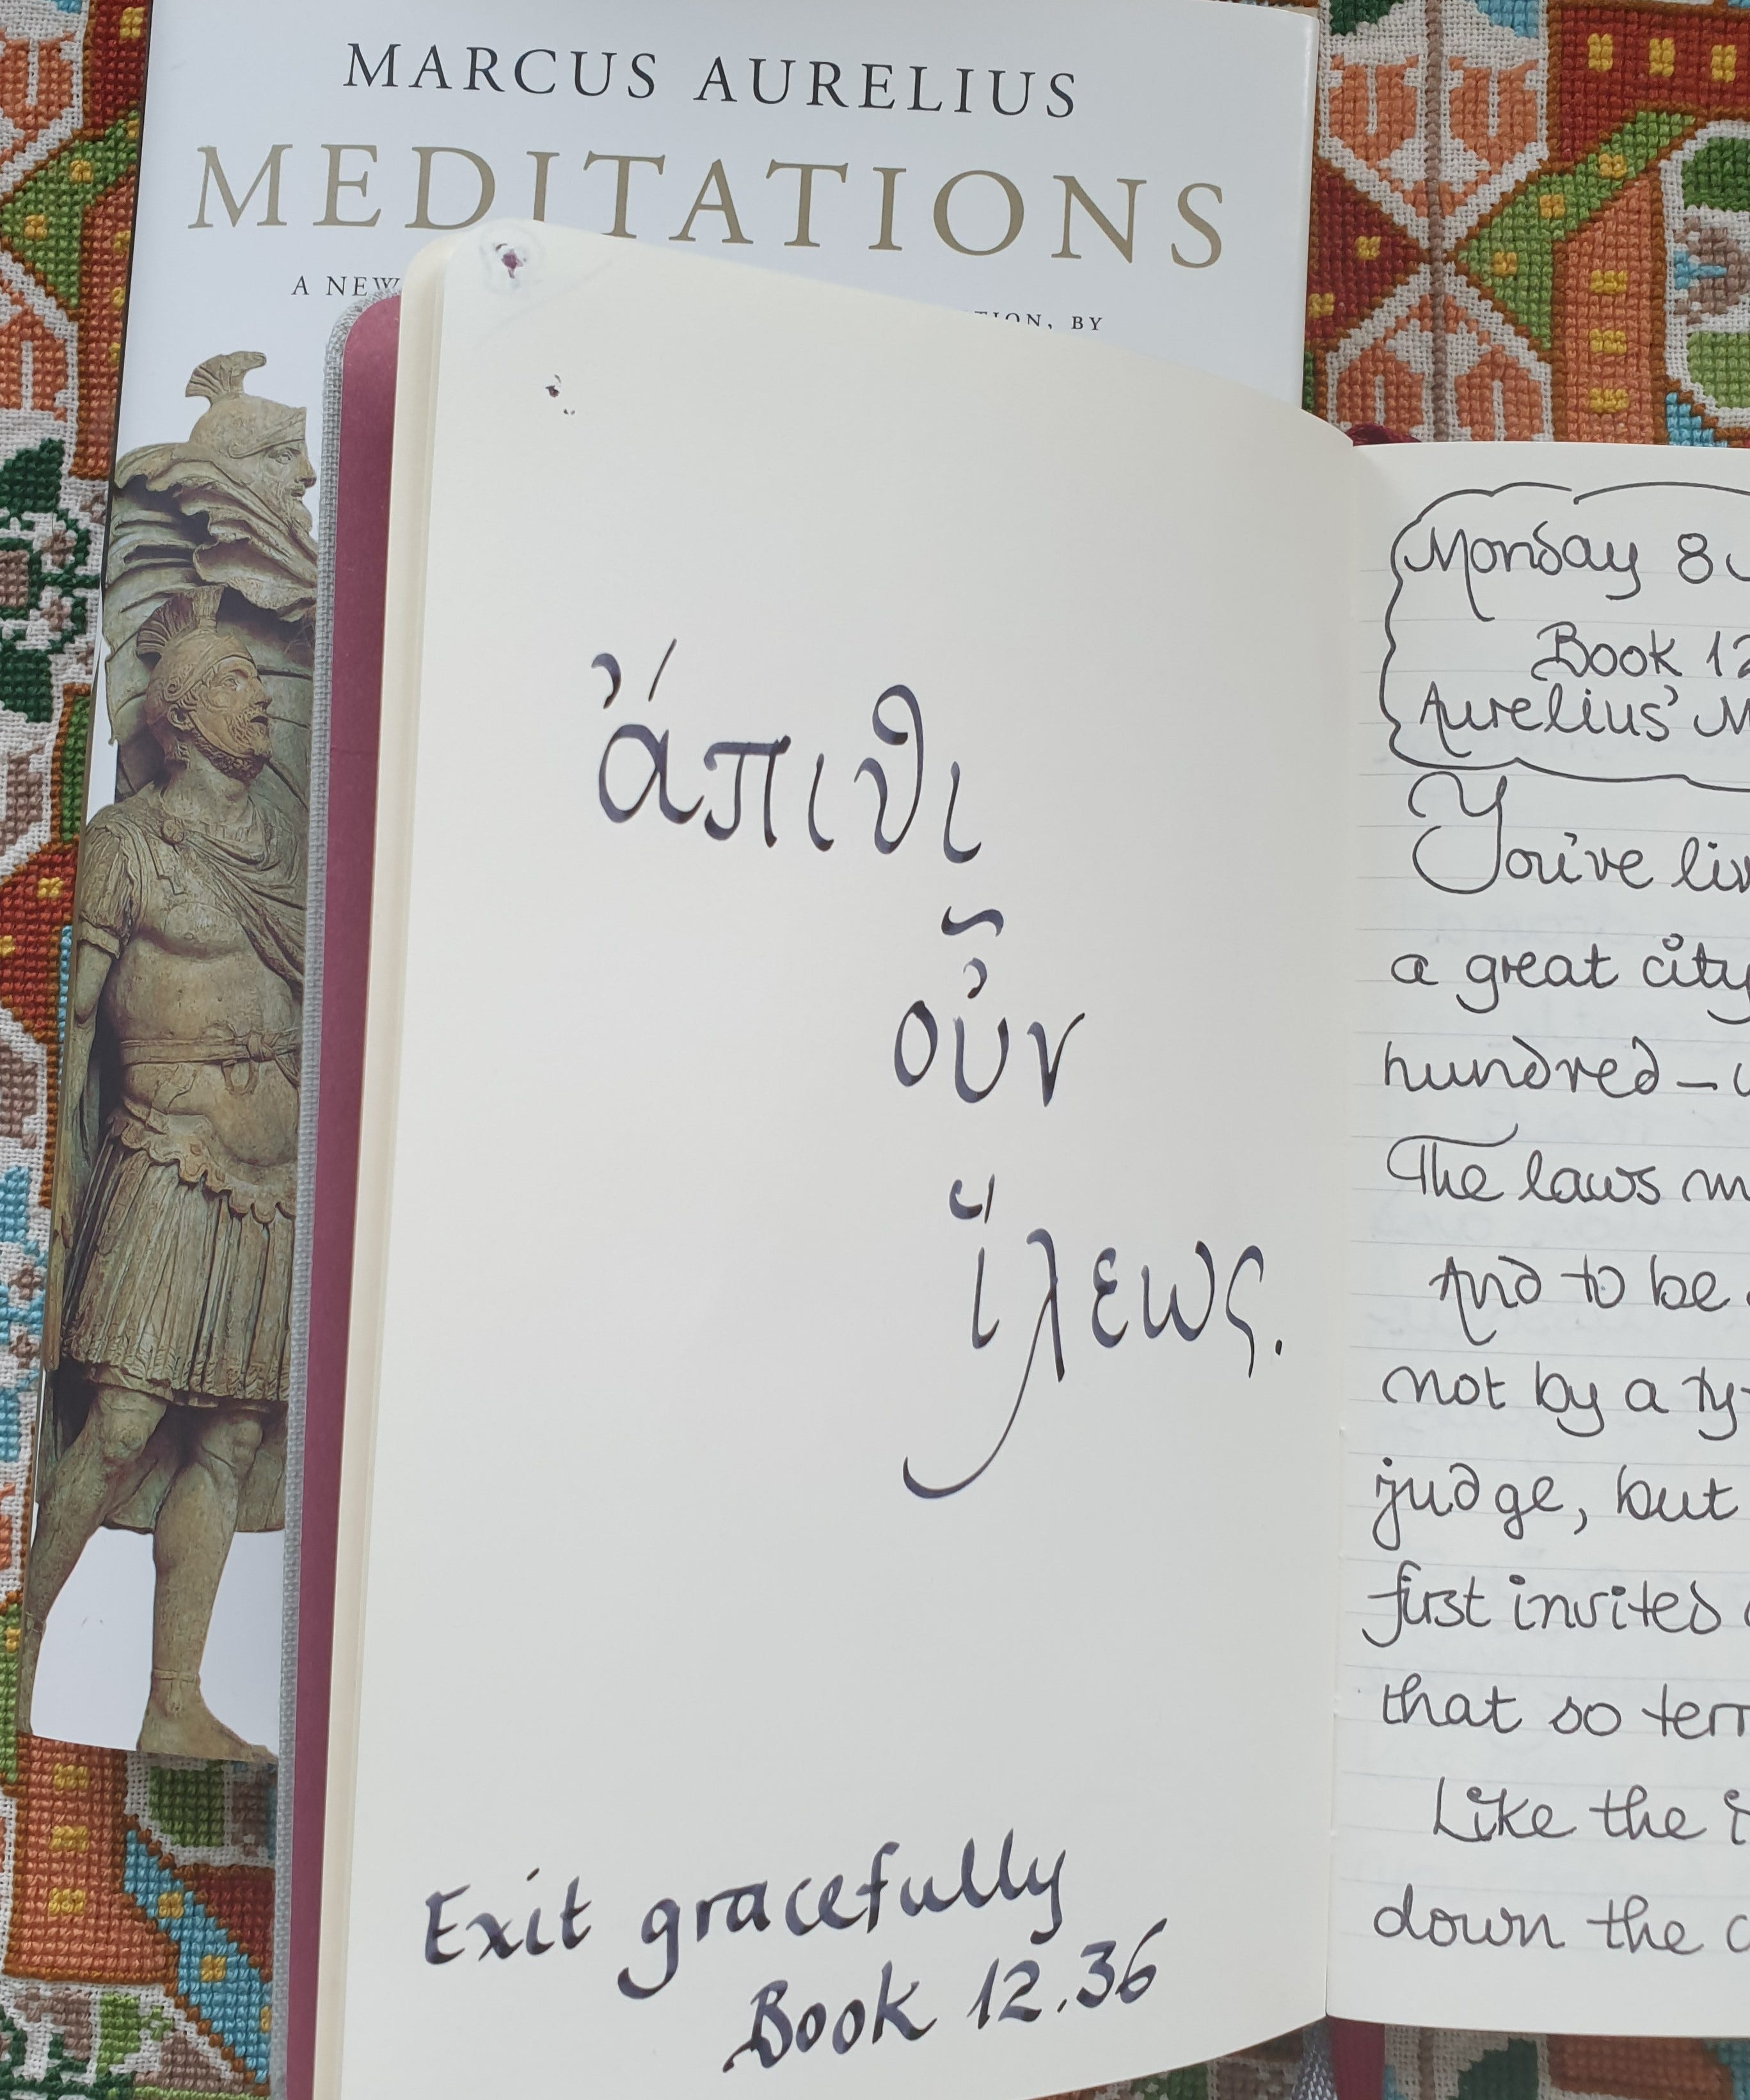 MARCUS AURELIUS
MEDITATIONS
A NEW
BY
ἄπιθι
οὖν
ἵλεως.
Exit gracefully
Book 12.36
Monday 8
Book 12
Aurelius'
You've
a great city
hundred –
The laws
And to be
not by a
judge, but
first invited
that so
Like the
down the